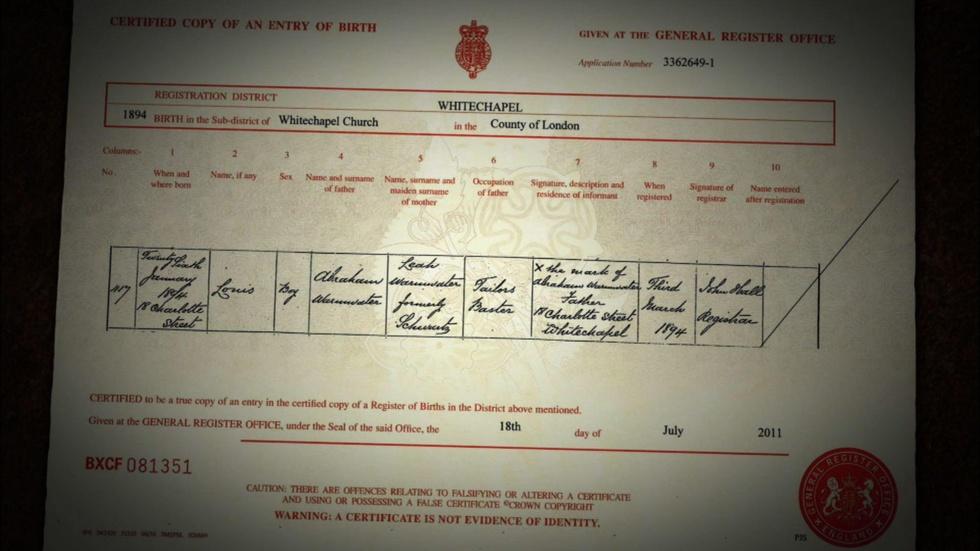 CERTIFIED COPY OF AN ENTRY OF BIRTH
GIVEN AT THE GENERAL REGISTER OFFICE
Application Number 3362649-1
REGISTRATION DISTRICT WHITECHAPEL
1894 BIRTH in the Sub-district of Whitechapel Church in the County of London
Columns:- 1 2 3 4 5 6 7 8 9 10
No. When and where born
Name, if any
Sex
Name and surname of father
Name, surname and maiden surname of mother
Occupation of father
Signature, description and residence of informant
When registered
Signature of registrar
Name entered after registration
417
Twenty Sixth
January
1894
18 Charlotte
Street
Louis
Boy
Abraham
Warmwater
Leah
Warmwater
formerly
Tailors
Baster
X the mark of
Abraham Warmwater
Father
18 Charlotte Street
Whitechapel
Third
March
1894
John Hall
Registrar
CERTIFIED to be a true copy of an entry in the certified copy of a Register of Births in the District above mentioned.
Given at the GENERAL REGISTER OFFICE, under the Seal of the said Office, the 18th day of July 2011
BXCF 081351
CAUTION: THERE ARE OFFENCES RELATING TO FALSIFYING OR ALTERING A CERTIFICATE
AND USING OR POSSESSING A FALSE CERTIFICATE ©CROWN COPYRIGHT
WARNING: A CERTIFICATE IS NOT EVIDENCE OF IDENTITY.
GENERAL REGISTER OFFICE
ENGLAND